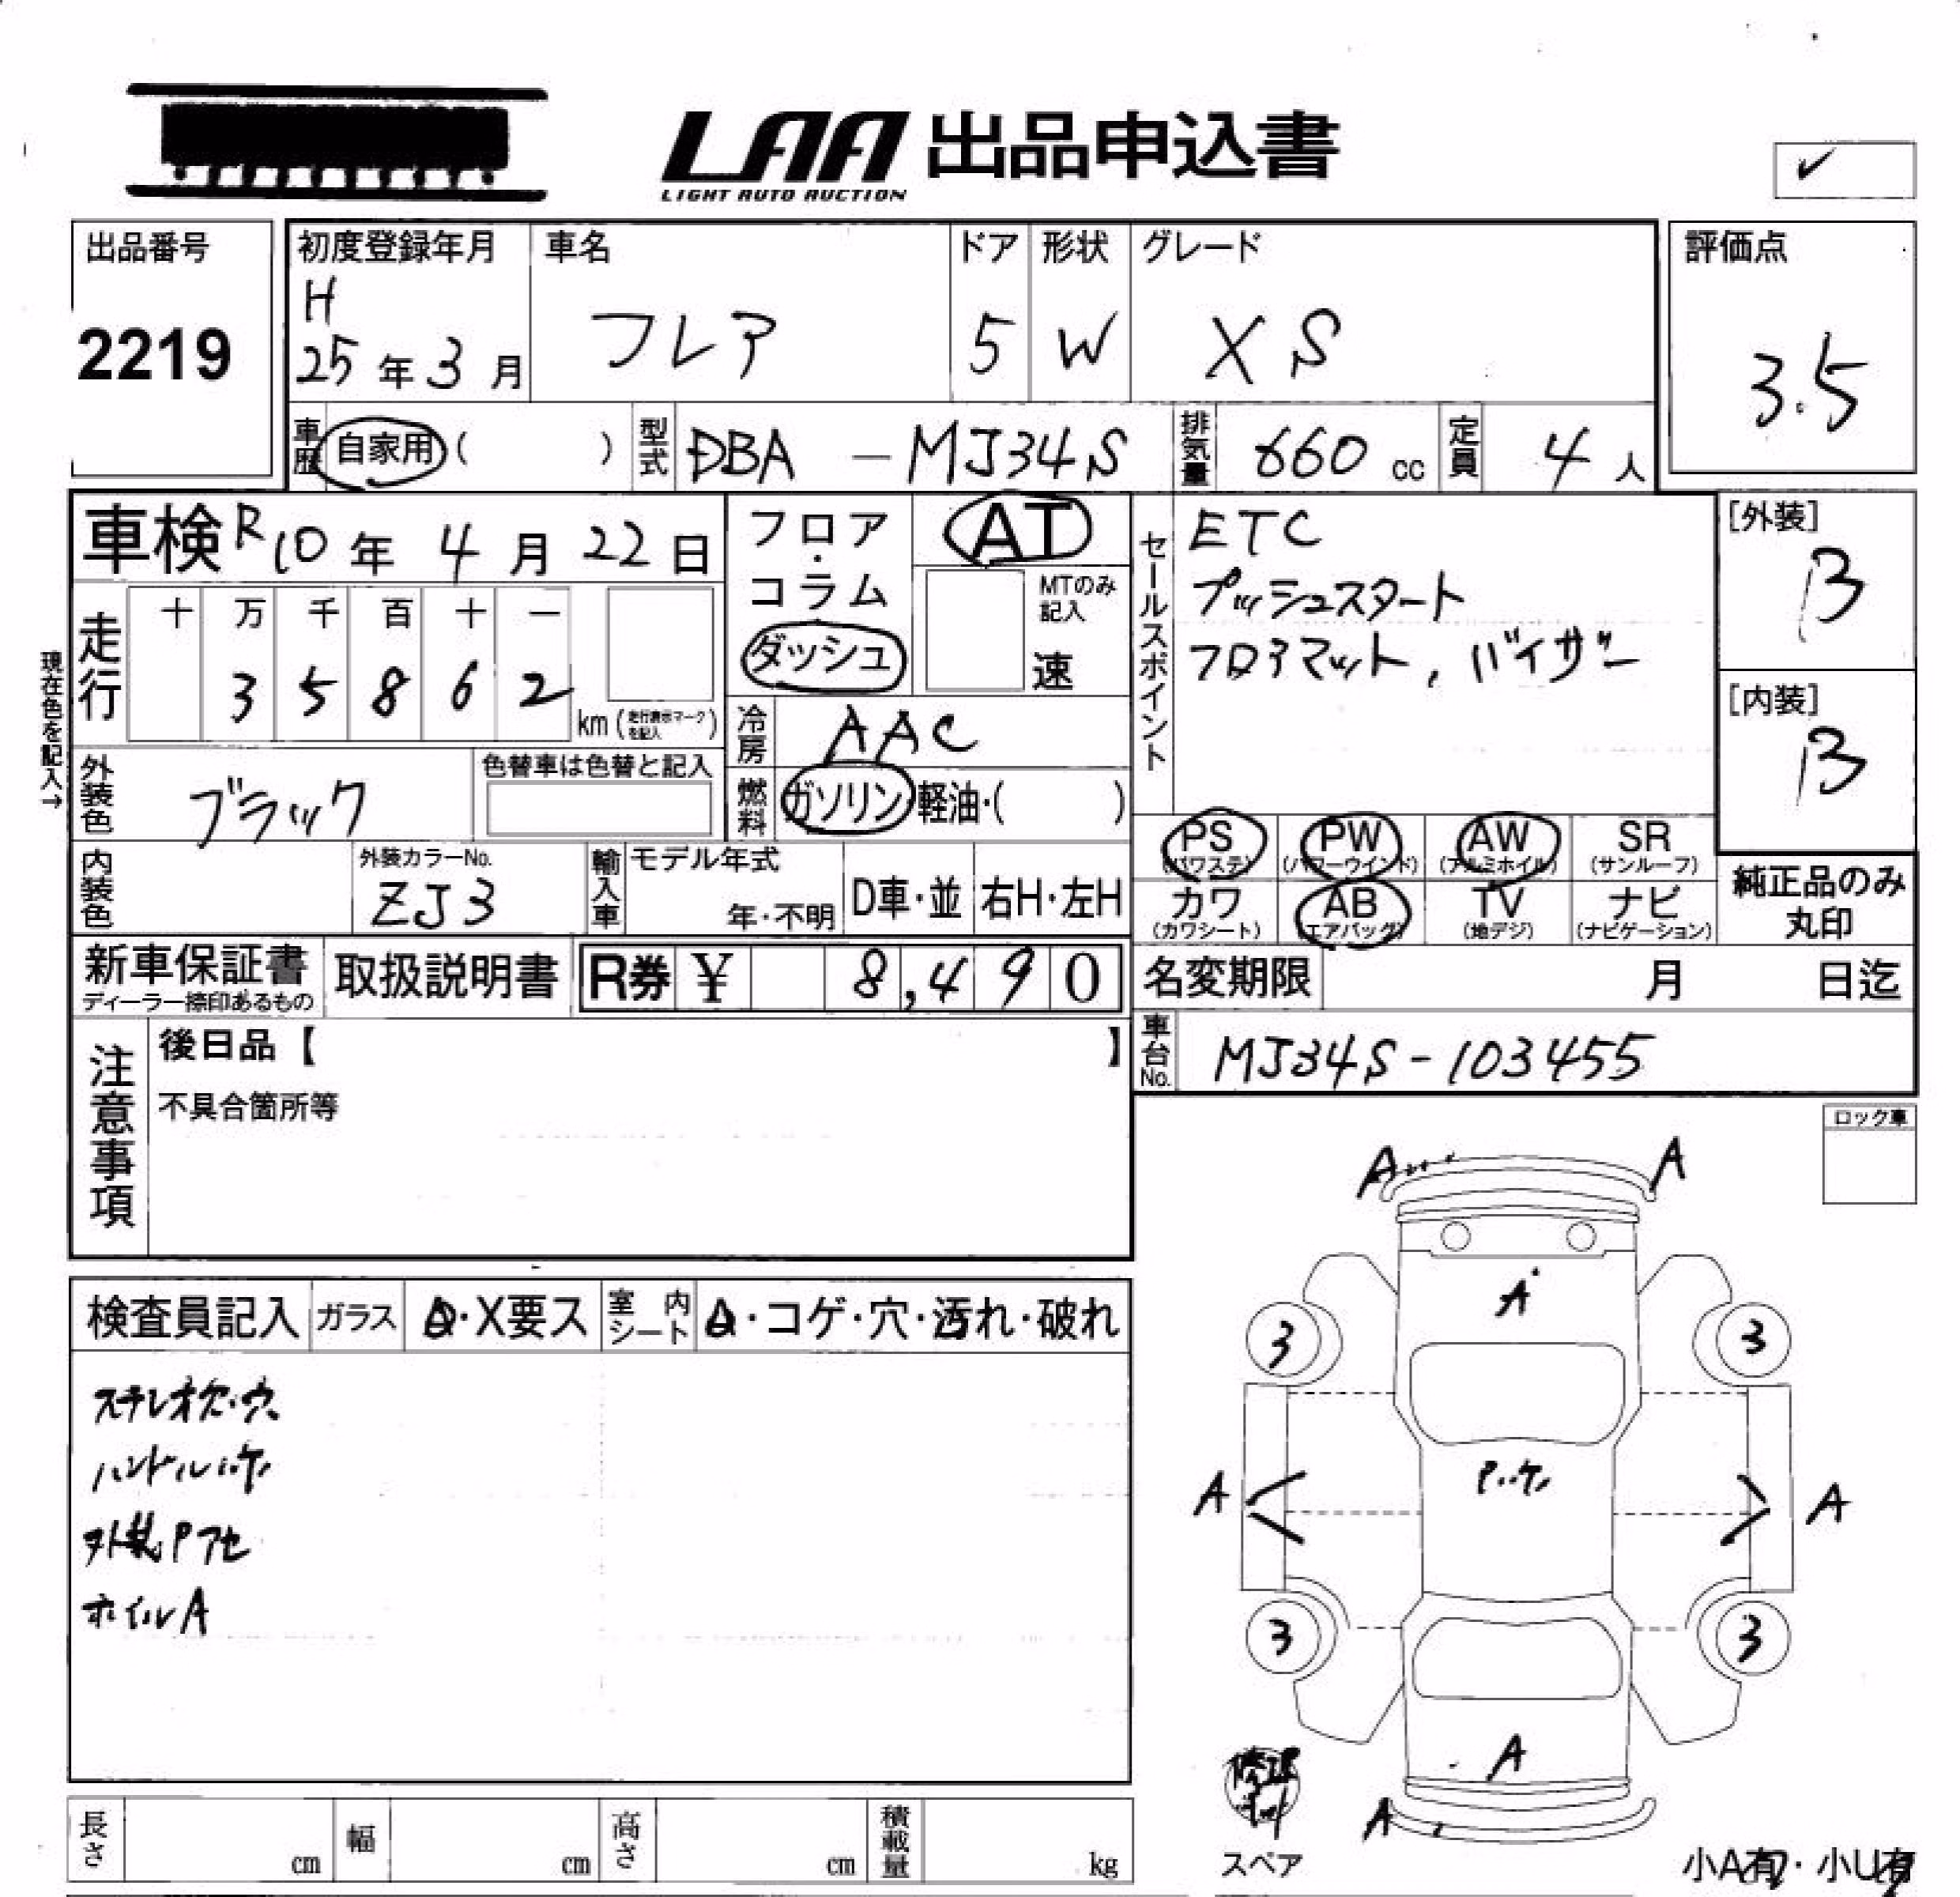 LAA 出品申込書
LIGHT AUTO AUCTION
出品番号
2219
初度登録年月
H
25年3月
車名
フレア
ドア
5
形状
W
グレード
XS
評価点
3.5
車歴 自家用( )
型式 DBA-MJ34S
排気量 660 cc
定員 4人
車検 R10年4月22日
フロア・コラム
ダッシュ
AT
MTのみ記入
速
セールスポイント
ETC
プッシュスタート
フロアマット, バイザー
[外装]
B
[内装]
B
現在色を記入→
走行 十 万 千 百 十 一
3 5 8 6 2
km(走行表示マークを記入)
冷房 AAC
燃料 ガソリン・軽油・( )
外装色 ブラック
色替車は色替と記入
内装色
外装カラーNo.
ZJ3
輸入車 モデル年式
年・不明
D車・並 右H・左H
PS (パワステ) PW (パワーウインド) AW (アルミホイル) SR (サンルーフ)
カワ (カワシート) AB (エアバッグ) TV (地デジ) ナビ (ナビゲーション)
純正品のみ
丸印
新車保証書
ディーラー捺印あるもの
取扱説明書
R券 ¥ 8,490
名変期限 月 日迄
車台No. MJ34S-103455
注意事項
後日品【 】
不具合箇所等
ロック車
検査員記入 ガラス ・X要ス 室内シート ・コゲ・穴・汚れ・破れ
ステレオ欠・穴
ハンドルハゲ
外装Pアセ
ホイルA
A A
A
3 3
A Pハゲ A
3 3
A
A
修理
スペア
小A有・小U有
長さ cm 幅 cm 高さ cm 積載量 kg